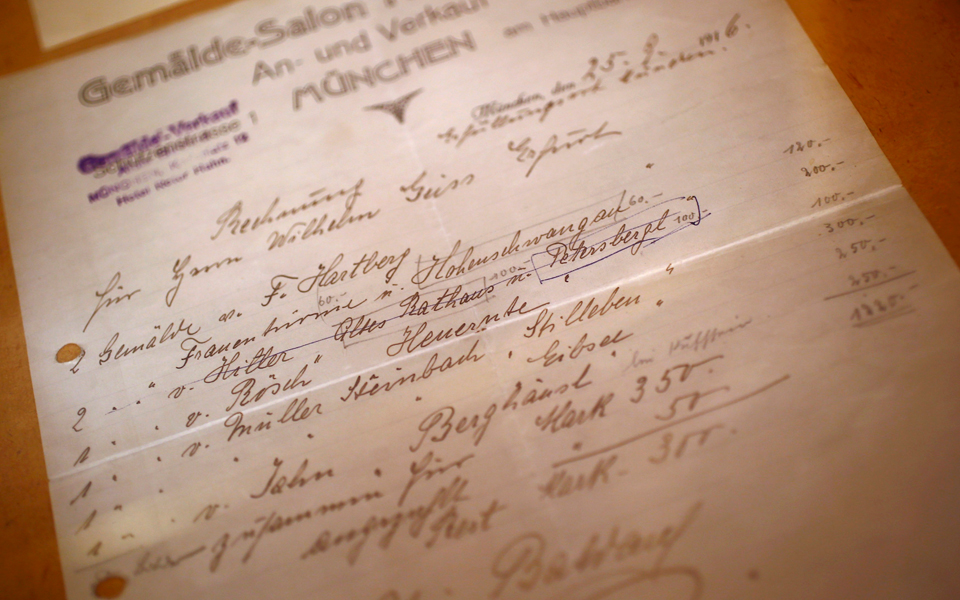 Gemälde-Salon
An- und Verkauf
MÜNCHEN am
Gemälde-Verkauf
München, den 25. 8. 1916.
Erfüllungsort München.
Rechnung
für Herrn Wilhelm Geiss Erfurt
2 Gemälde v. F. Hartberg Hohenschwangau 60.- " 120.-
60.- Frauentürme u. 100.-
2 " " v. Hitler Altes Rathaus u. Petersbergl 100.- " 200.-
1 " " v. Rösch " Heuernte " " 100.-
1 " " v. Müller Steinbach " Stilleben " 300.-
1 " " " " Eibsee " 250.-
1 " " v. Jahn " Berghäusl bei Kufstein 250.-
1220.-
zusammen für Mark 350.
angezahlt 50.
Rest Mark - 300.